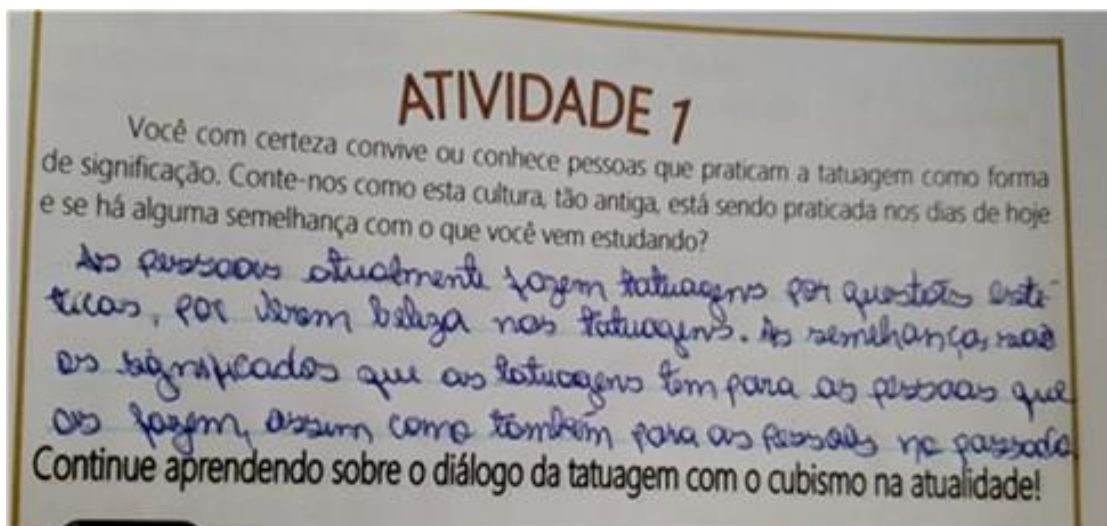 ATIVIDADE 1
Você com certeza convive ou conhece pessoas que praticam a tatuagem como forma
de significação. Conte-nos como esta cultura, tão antiga, está sendo praticada nos dias de hoje
e se há alguma semelhança com o que você vem estudando?
As pessoas atualmente fazem tatuagens por questões esté-
ticas, por verem beleza nas tatuagens. As semelhanças são
os significados que as tatuagens tem para as pessoas que
as fazem, assim como também para as pessoas no passado
Continue aprendendo sobre o diálogo da tatuagem com o cubismo na atualidade!